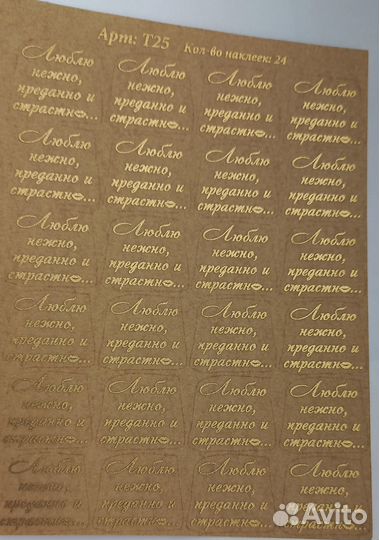 Арт: Т25 Кол-во наклеек: 24
Люблю
нежно,
преданно и
страстн...
Люблю
нежно,
преданно и
страстн...
Люблю
нежно,
преданно и
страстн...
Люблю
нежно,
преданно и
страстн...
Люблю
нежно,
преданно и
страстн...
Люблю
нежно,
преданно и
страстн...
Люблю
нежно,
преданно и
страстн...
Люблю
нежно,
преданно и
страстн...
Люблю
нежно,
преданно и
страстн...
Люблю
нежно,
преданно и
страстн...
Люблю
нежно,
преданно и
страстн...
Люблю
нежно,
преданно и
страстн...
Люблю
нежно,
преданно и
страстн...
Люблю
нежно,
преданно и
страстн...
Люблю
нежно,
преданно и
страстн...
Люблю
нежно,
преданно и
страстн...
Люблю
нежно,
преданно и
страстн...
Люблю
нежно,
преданно и
страстн...
Люблю
нежно,
преданно и
страстн...
Люблю
нежно,
преданно и
страстн...
Люблю
нежно,
преданно и
страстн...
Люблю
нежно,
преданно и
страстн...
Люблю
нежно,
преданно и
страстн...
Люблю
нежно,
преданно и
страстн...
Avito